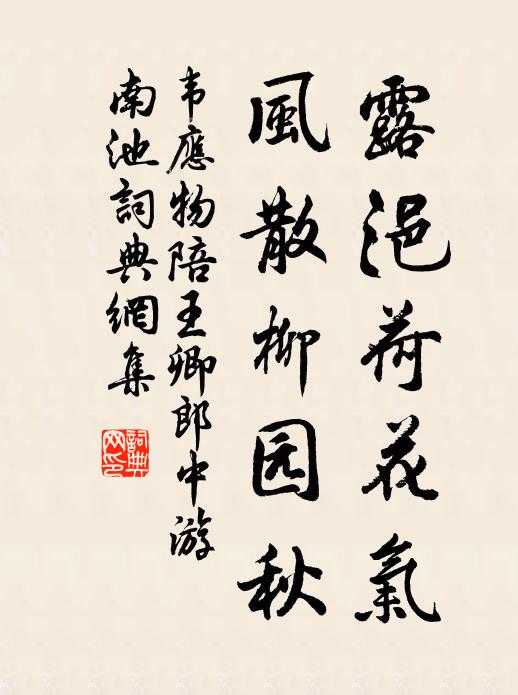 露浥荷花氣
風散柳园秋
韦應物陪王卿郎中游
南池詞典網集
詞典网印